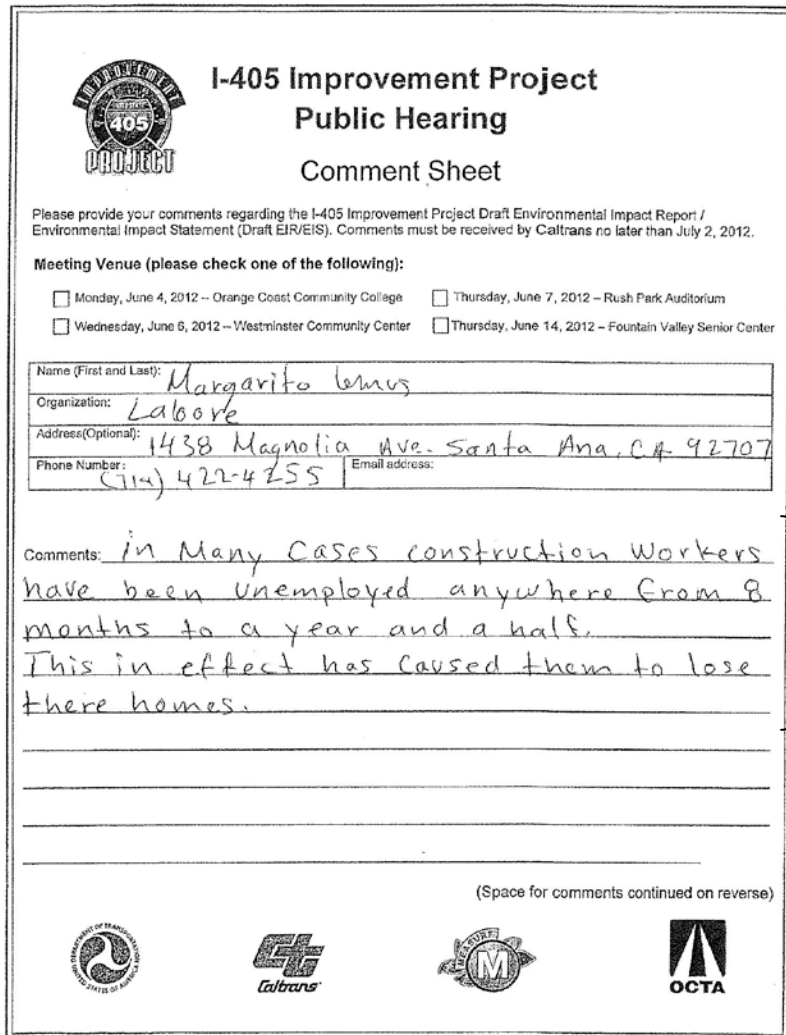 IMPROVEMENT
405
PROJECT
I-405 Improvement Project
Public Hearing
Comment Sheet
Please provide your comments regarding the I-405 Improvement Project Draft Environmental Impact Report /
Environmental Impact Statement (Draft EIR/EIS). Comments must be received by Caltrans no later than July 2, 2012.
Meeting Venue (please check one of the following):
Monday, June 4, 2012 – Orange Coast Community College
Thursday, June 7, 2012 – Rush Park Auditorium
Wednesday, June 6, 2012 – Westminster Community Center
Thursday, June 14, 2012 – Fountain Valley Senior Center
Name (First and Last): Margarito Lemus
Organization: Labore
Address(Optional): 1438 Magnolia Ave. Santa Ana, CA 92707
Phone Number: (714) 422-4255
Email address:
Comments: in Many Cases construction Workers
have been unemployed anywhere from 8
months to a year and a half.
This in effect has caused them to lose
there homes.
(Space for comments continued on reverse)
DEPARTMENT OF TRANSPORTATION
UNITED STATES OF AMERICA
Caltrans
MEASURE
M
OCTA